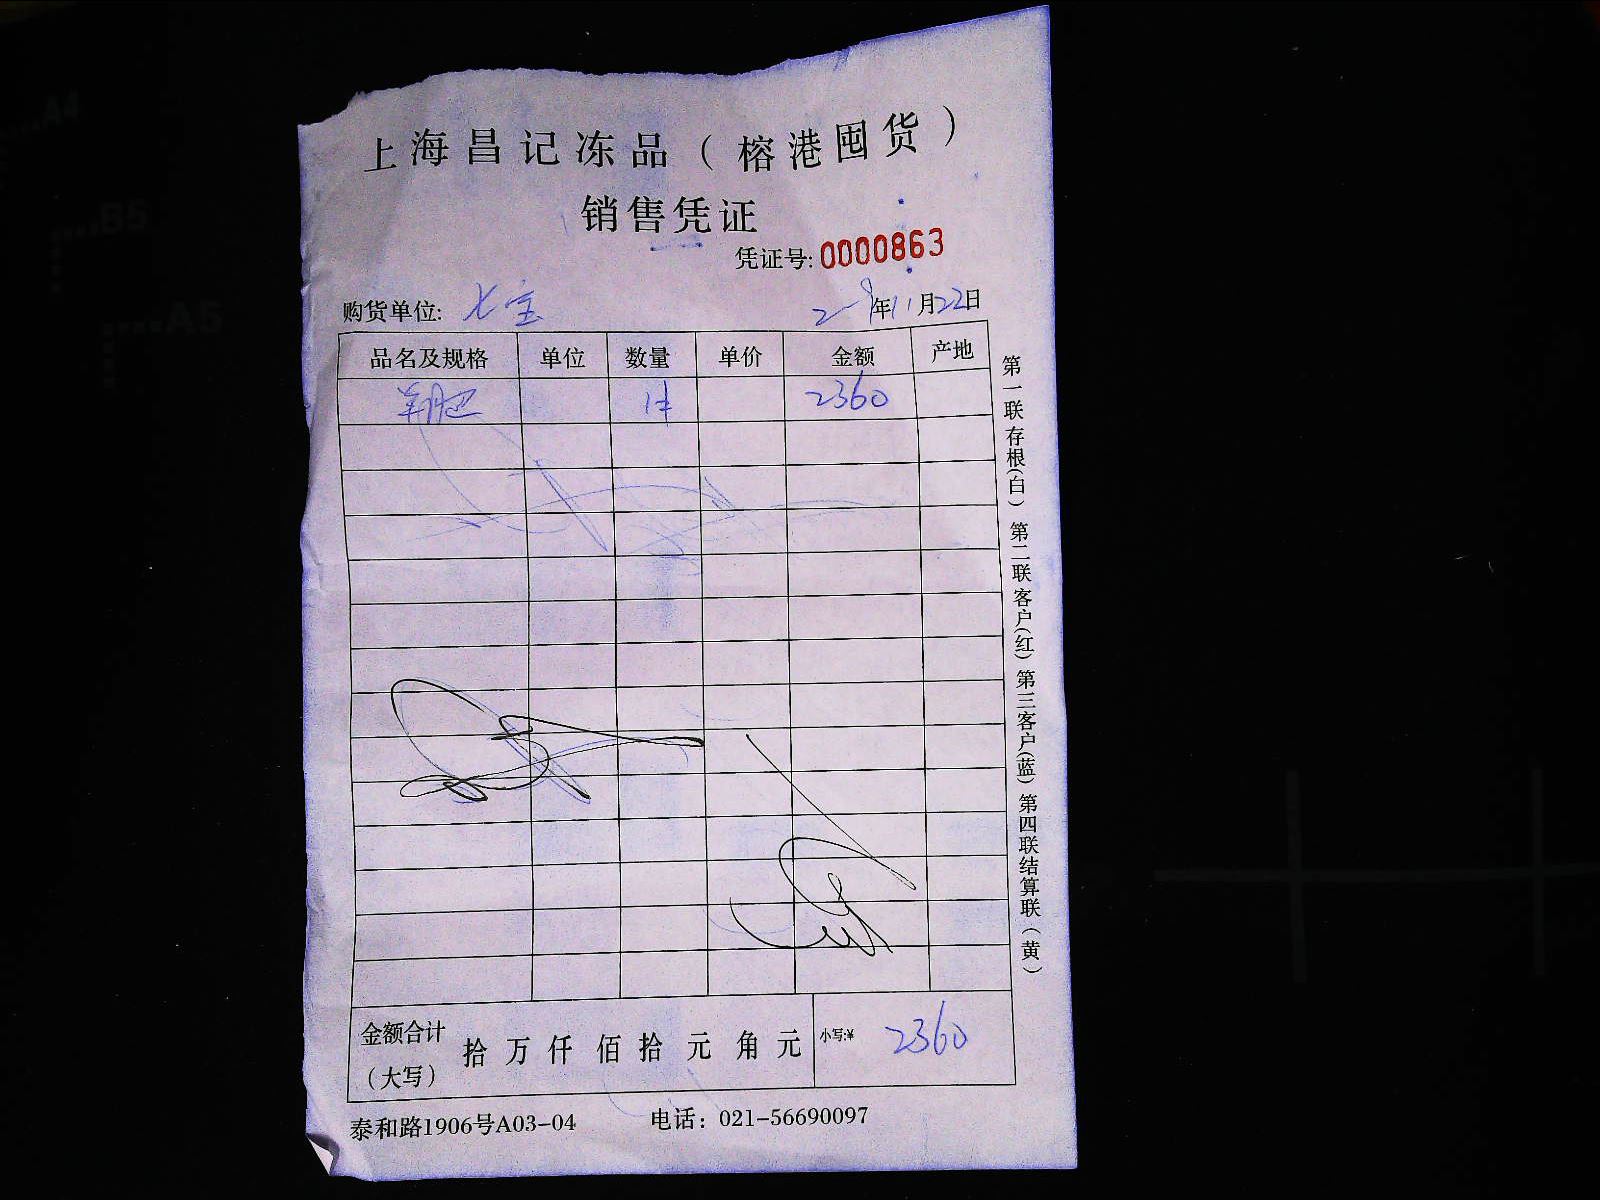 上海昌记冻品（榕港囤货）
销售凭证
凭证号:0000863
购货单位: 七宝 2-9年11月22日
品名及规格 单位 数量 单价 金额 产地
羊肥 1件 2360
金额合计（大写） 拾 万 仟 佰 拾 元 角 元 小写:¥ 2360
泰和路1906号A03-04 电话：021-56690097
第一联存根(白) 第二联客户(红) 第三客户(蓝) 第四联结算联(黄)
A4
B5
A5